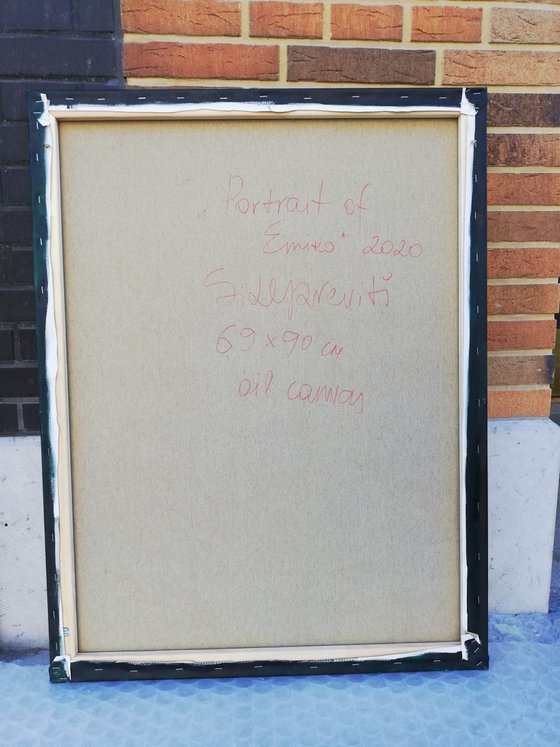 „Portrait of
Emiko" 2020
69 x 90 cm
oil canvas